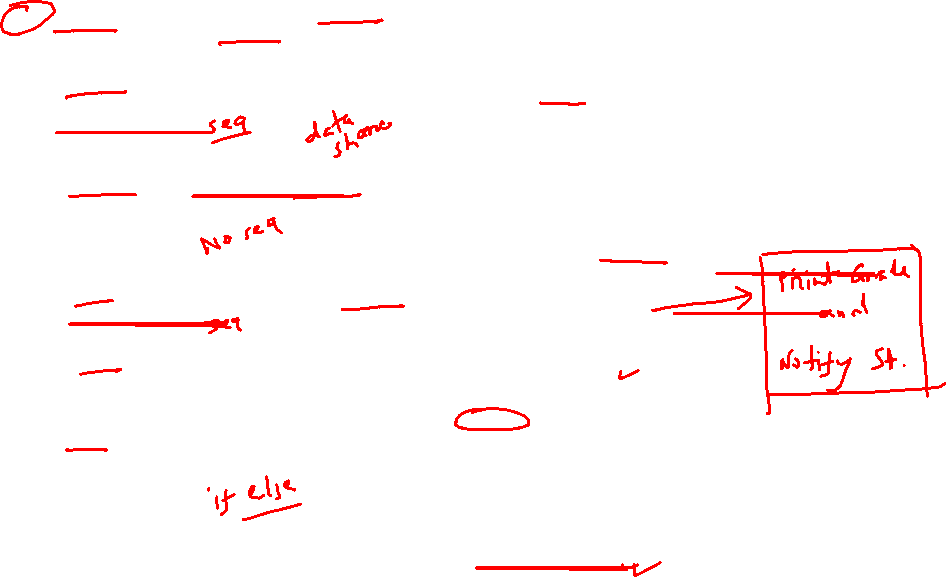 seq
data
share
No seq
Print Grade
seq
and
Notify St.
if else